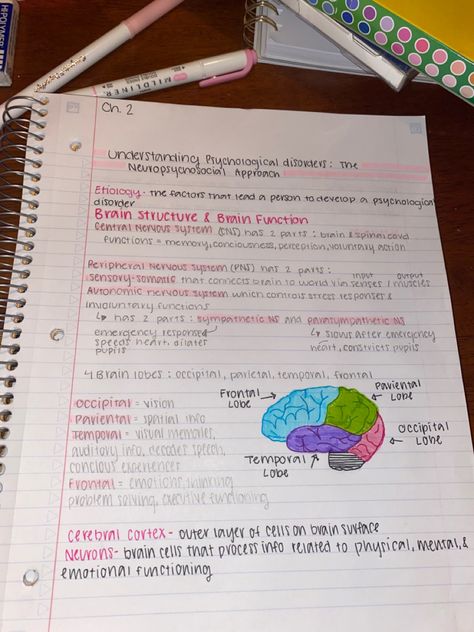 HI-POLYMER
MILDLINER
Ch. 2
Understanding Psychological disorders: The
Neuropsychosocial Approach
Etiology - the factors that lead a person to develop a psychological
disorder
Brain Structure & Brain Function
Central Nervous System (CNS) has 2 parts: brain & spinal cord
functions = memory, conciousness, perception, voluntary action
Peripheral Nervous System (PNS) has 2 parts:
input output
sensory-somatic that connects brain to world via senses / muscles
Autonomic nervous system which controls stress responses &
involuntary functions
↳ has 2 parts: sympathetic NS and parasympathetic NS
emergency response ↳ slows after emergency
speeds heart, dilates heart, constricts pupils
pupils
4 Brain lobes: occipital, parietal, temporal, frontal
Frontal Lobe
Pariental Lobe
Occipital = vision
Pariental = spatial info
Temporal = visual memories,
auditory info, decodes speech,
concious experiences
Frontal = emotions, thinking
problem solving, executive functioning
Occipital Lobe
Temporal Lobe
Cerebral cortex - outer layer of cells on brain surface
Neurons - brain cells that process info related to physical, mental, &
emotional functioning